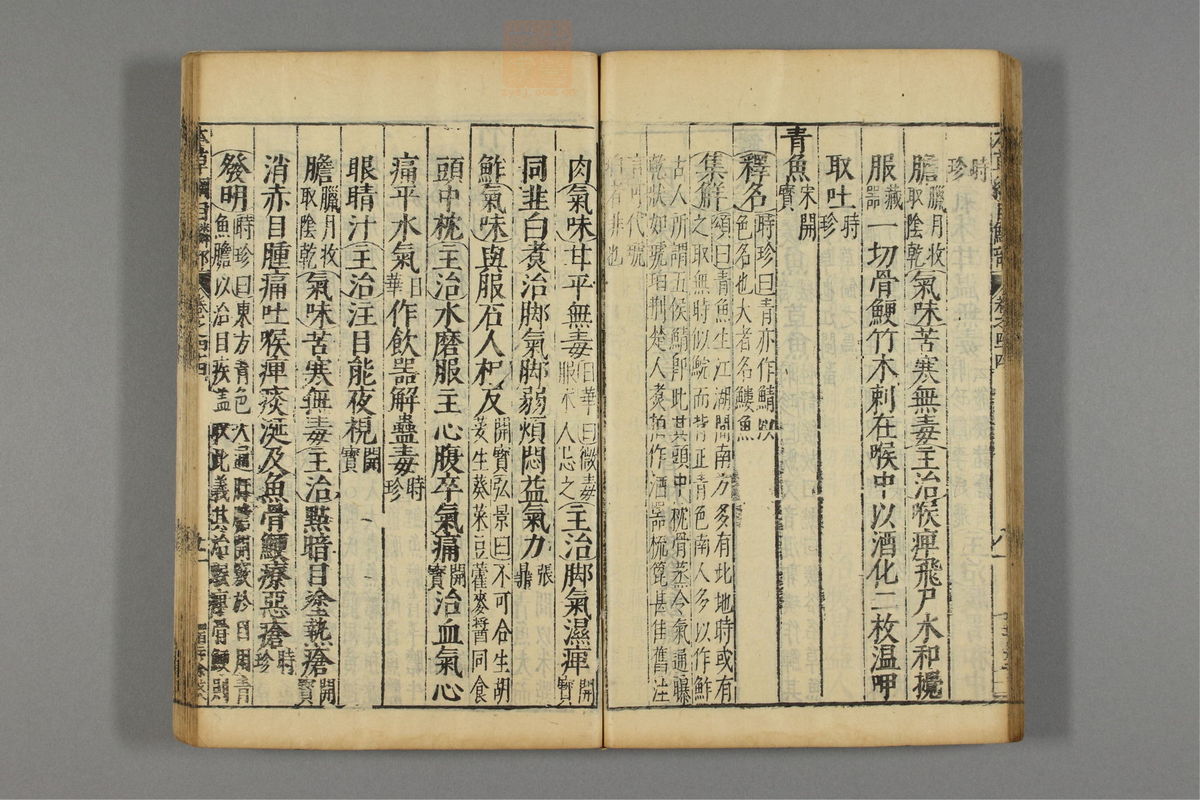 時珍
膽臘月收取陰乾氣味苦寒無毒主治喉痺飛尸水和攪
服藏器一切骨鯁竹木刺在喉中以酒化二枚温呷
取吐時珍
青魚宋開寶
釋名時珍曰青亦作鯖以色名也大者名鰱魚
集解頌曰青魚生江湖間南方多有北地時或有之取無時似鯇而背正青色南人多以作鮓
古人所謂五侯鯖即此其頭中枕骨蒸令氣通曝乾狀如琥珀荆楚人煮拍作酒器梳篦甚佳舊注
言可代琥珀者非也
肉氣味甘平無毒日華曰微毒服朮人忌之主治脚氣濕痺開寶
同韭白煮治脚氣脚弱煩悶益氣力張鼎
鮓氣味與服石人相反開寶弘景曰不可合生胡荽生葵菜豆藿麥醬同食
頭中枕主治水磨服主心腹卒氣痛開寶治血氣心
痛平水氣日華作飲器解蠱毒時珍
眼睛汁主治注目能夜視開寶
膽臘月收取陰乾氣味苦寒無毒主治點暗目塗熱瘡開寶
消赤目腫痛吐喉痺痰涎及魚骨鯁療惡瘡時珍
發明時珍曰東方青色入通肝膽開竅於目用青魚膽以治目疾蓋取此義其治喉痺骨鯁則
本草綱目鱗部 卷之四四